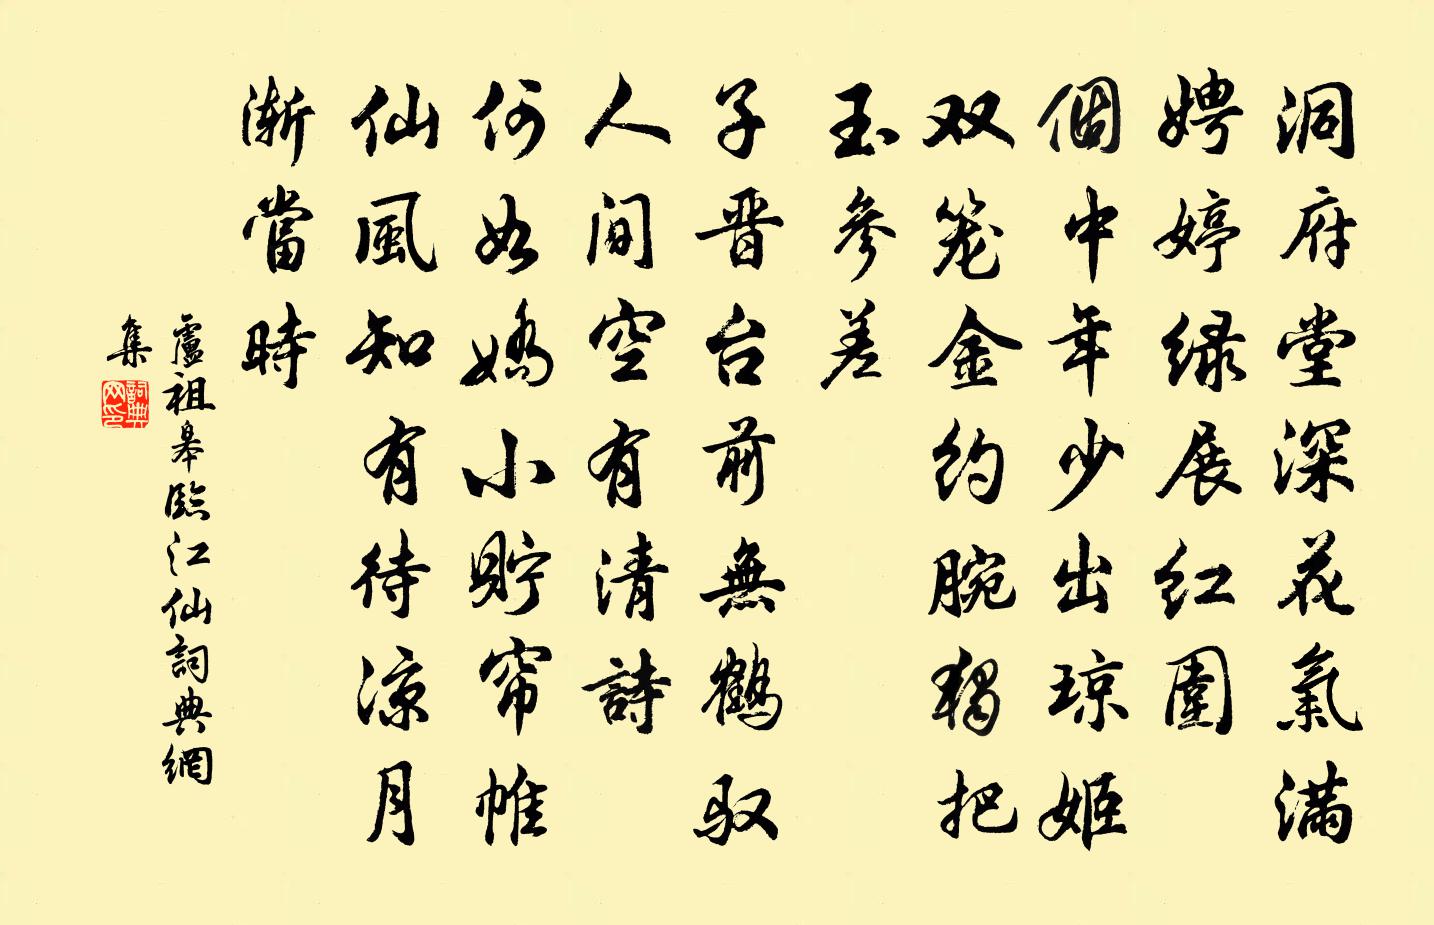 洞府堂深花氣滿
娉婷绿展红圍
個中年少出琼姬
双笼金约腕独把
玉參差
子晋台前無鶴驭
人间空有清詩
何如嬌小貯帘帷
仙風知有待涼月
渐當時
盧祖皋臨江仙詞典網
集
詞典网印